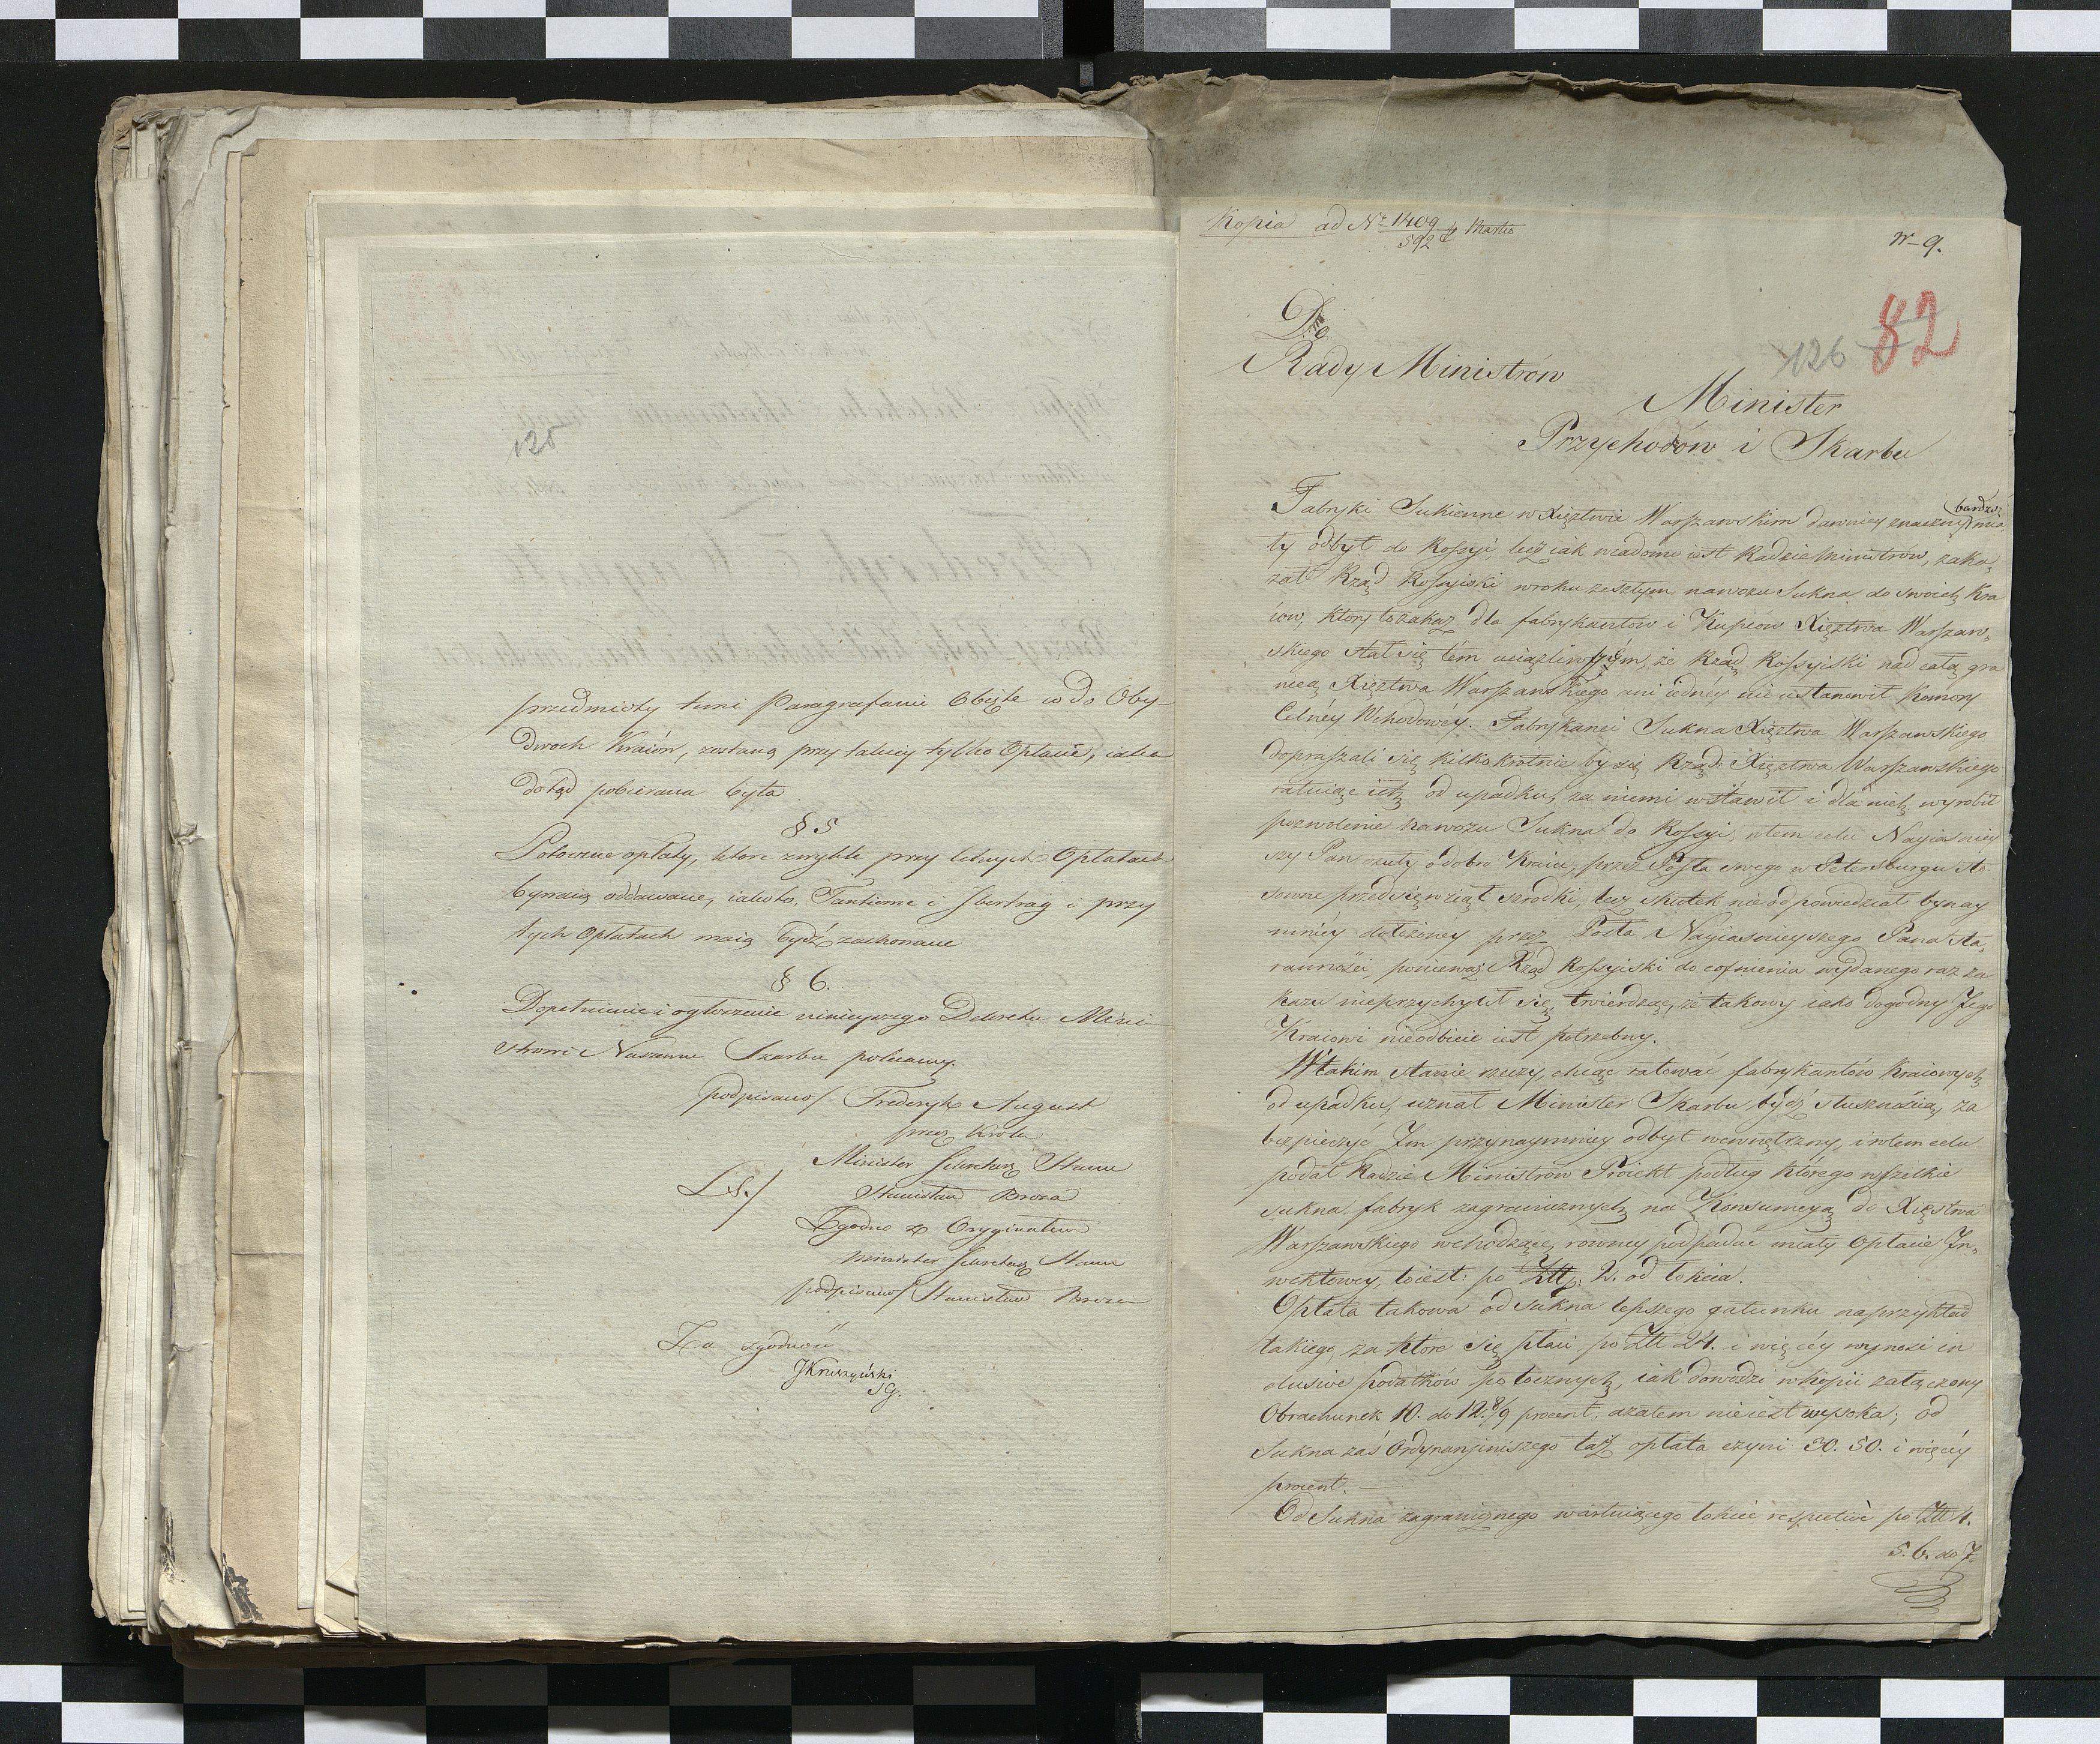 125
przedmioty temi Paragrafami Obięte co do Oby-
dwoch Kraiów, zostaną przy takiey tylko Opłacie, iaka
dotąd pobierana była
§ 5
Poboczne opłaty, ktore zwykle przy celnych Opłatach
bywaią oddawane, iako to. Tantieme i i przy
tych Opłatach maią bydź zachowane
§ 6.
Dopełnienie i ogłoszenie ninieyszego Dekretu Mini-
strowi Naszemu Skarbu polecamy.
podpisano/ Frederyk August
przez Króla
Minister Sekretarz Stanu
L.S./ Stanisław Breza
Zgodno z Oryginałem
Minister Sekretarz Stanu
podpisano/ Stanisław Breza
Za zgodność
JKruszyński
SG.
Kopia ad Nr 1409/592 Martii
N-9.
82
126
Do
Rady Ministrów
Minister
Przychodów i Skarbu
Fabryki Sukienne w Xięztwie Warszawskim dawniey znaczny (bardzo) mia-
ły odbyt do Rossyi, lecz iak wiadomo iest Radzie Ministrow, zaka-
zał Rząd Rossyiski w roku zeszłym nawozu Sukna do swoich Kra
iow, ktory to zakaz dla fabrykantow i Kupcow Xięztwa Warszaw-
skiego stał się tém uciążliwszém, że Rząd Rossyiski nad całą gra
nicą Xięztwa Warszawskiego ani iednéy nie ustanowił Komory
Celnéy Wchodowéy. Fabrykanci Sukna Xięztwa Warszawskiego
dopraszali się kilkokrótnie by się Rząd Xięztwa Warszawskiego
ratuiąc ich od upadku, za niemi wstawił i dla nich wyrobił
pozwolenie nawozu Sukna do Rossyi, w tem celu Nayiaśniey
szy Pan czuły o dobro Kraiu, przez Posła swego w Petersburgu sto
sowne przedsięwziął szrodki, lecz skutek nie odpowiedział bynay
mniéy dołożoney przez Posła Nayiasnieyszego Pana sta-
ranności, ponieważ Rząd Rossyiski do cofnienia wydanego raz za
kazu nieprzychylił się, twierdząc, że takowy iako dogodny Jego
Kraiowi nieodbicie iest potrzebny.
W takim stanie rzeczy, chcąc ratować fabrykantów Kraiowych
od upadku, uznał Minister Skarbu bydź słusznością, za
bezpieczyć Im przynaymniey odbyt wewnętrzny, i w tem celu
podał Radzie Ministrow Proiekt podług którego wszelkie
sukna fabryk zagranicznych na Konsumcyą do Xięstwa
Warszawskiego wchodzące, rowney podpadać miały Opłacie In-
wektowey, to iest: po Złłp. 2. od łokcia.
Opłata takowa od sukna lepszego gatunku naprzykład
takiego, za ktore się płaci po Złł 24. i więcéy wynosi in
clusive podatków pobocznych, iak dowodzi w kopii załączony
Obrachunek 10. do 12.8/9 procent, a zatem nie iest wysoka; od
Sukna zaś Ordynaryiniszego taż opłata czyni 30. 50. i więcéy
procent. —
Od Sukna zagranicznego wartuiącego łokieć respective po Złł 4.
5. 6. do 7.